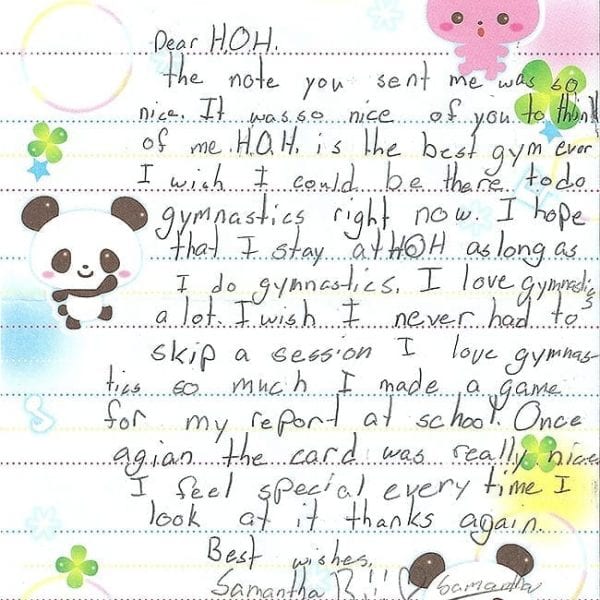 Dear H.O.H.
the note you sent me was so
nice. It was so nice of you to think
of me. H.O.H. is the best gym ever
I wish I could be there to do
gymnastics right now. I hope
that I stay at HOH as long as
I do gymnastics. I love gymnastics
a lot. I wish I never had to
skip a session I love gymnas-
tics so much I made a game
for my report at school. Once
agian the card was really nice
I feel special every time I
look at it thanks again.
Best wishes,
Samantha B!! Samantha